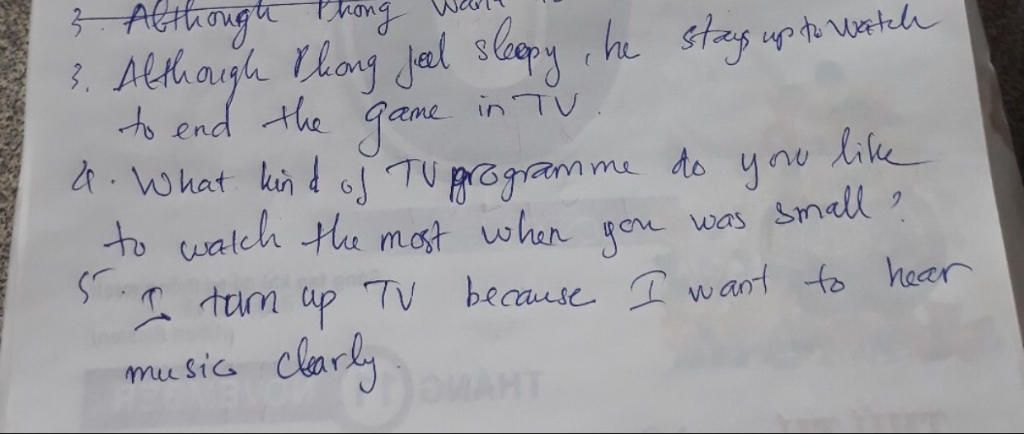 3. Although Phong want to
3. Although Phong feel sleepy, he stays up to watch
to end the game in TV.
4. What kind of TV programme do you like
to watch the most when you was small?
5. I turn up TV because I want to hear
music clearly.
THÁNG 11 NOVEMBER